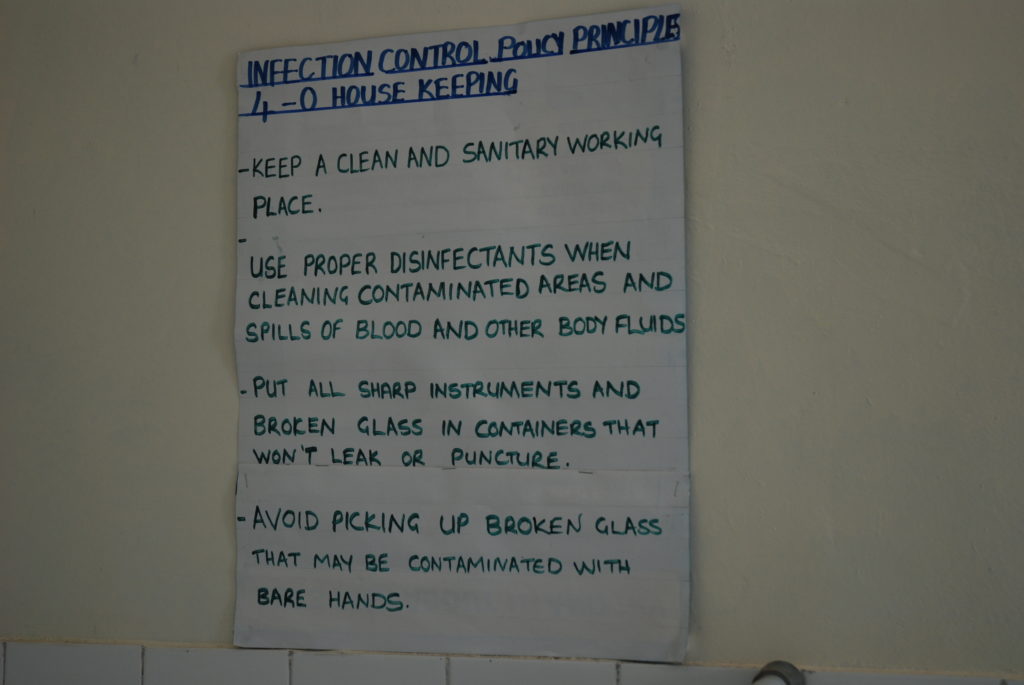 INFECTION CONTROL POLICY PRINCIPLES
4-0 HOUSE KEEPING
-KEEP A CLEAN AND SANITARY WORKING
PLACE.
-
USE PROPER DISINFECTANTS WHEN
CLEANING CONTAMINATED AREAS AND
SPILLS OF BLOOD AND OTHER BODY FLUIDS
-PUT ALL SHARP INSTRUMENTS AND
BROKEN GLASS IN CONTAINERS THAT
WON'T LEAK OR PUNCTURE.
-AVOID PICKING UP BROKEN GLASS
THAT MAY BE CONTAMINATED WITH
BARE HANDS.